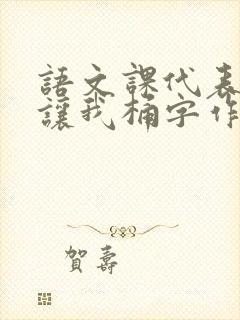 語文課代表
讓我桶字作
賀壽